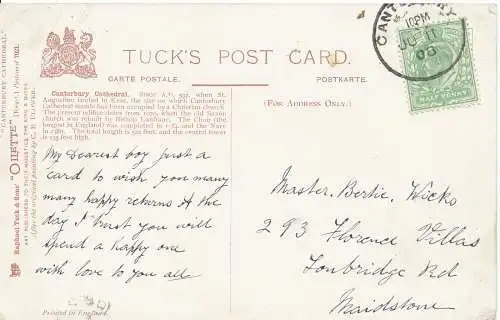 CANTERBURY
10 PM
TUCK'S POST CARD.
CARTE POSTALE.
POSTKARTE.
(FOR ADDRESS ONLY.)
"CANTERBURY CATHEDRAL."
Raphael Tuck & Sons' "OILETTE" [Regd.] Postcard 7021.
ART PUBLISHERS TO THEIR MAJESTIES THE KING & QUEEN
After the original painting by C. E. FLOWER.
Canterbury Cathedral. SINCE A.D. 597, when St.
Augustine landed in Kent, the site on which Canterbury
Cathedral stands has been occupied by a Christian church.
The present edifice dates from 1070, when the old Saxon
church was rebuilt by Bishop Lanfranc. The Choir (the
longest in England) was completed in 1184, and the Nave
in The total length is feet, and the tower
is 235 feet high.
My Dearest boy Just a
card to wish you many
many happy returns of the
day I trust you will
spend a happy one
with love to you all
Master. Bertie. Wicks
293 Florence Villas
Tonbridge Rd
Maidstone
Printed in England.